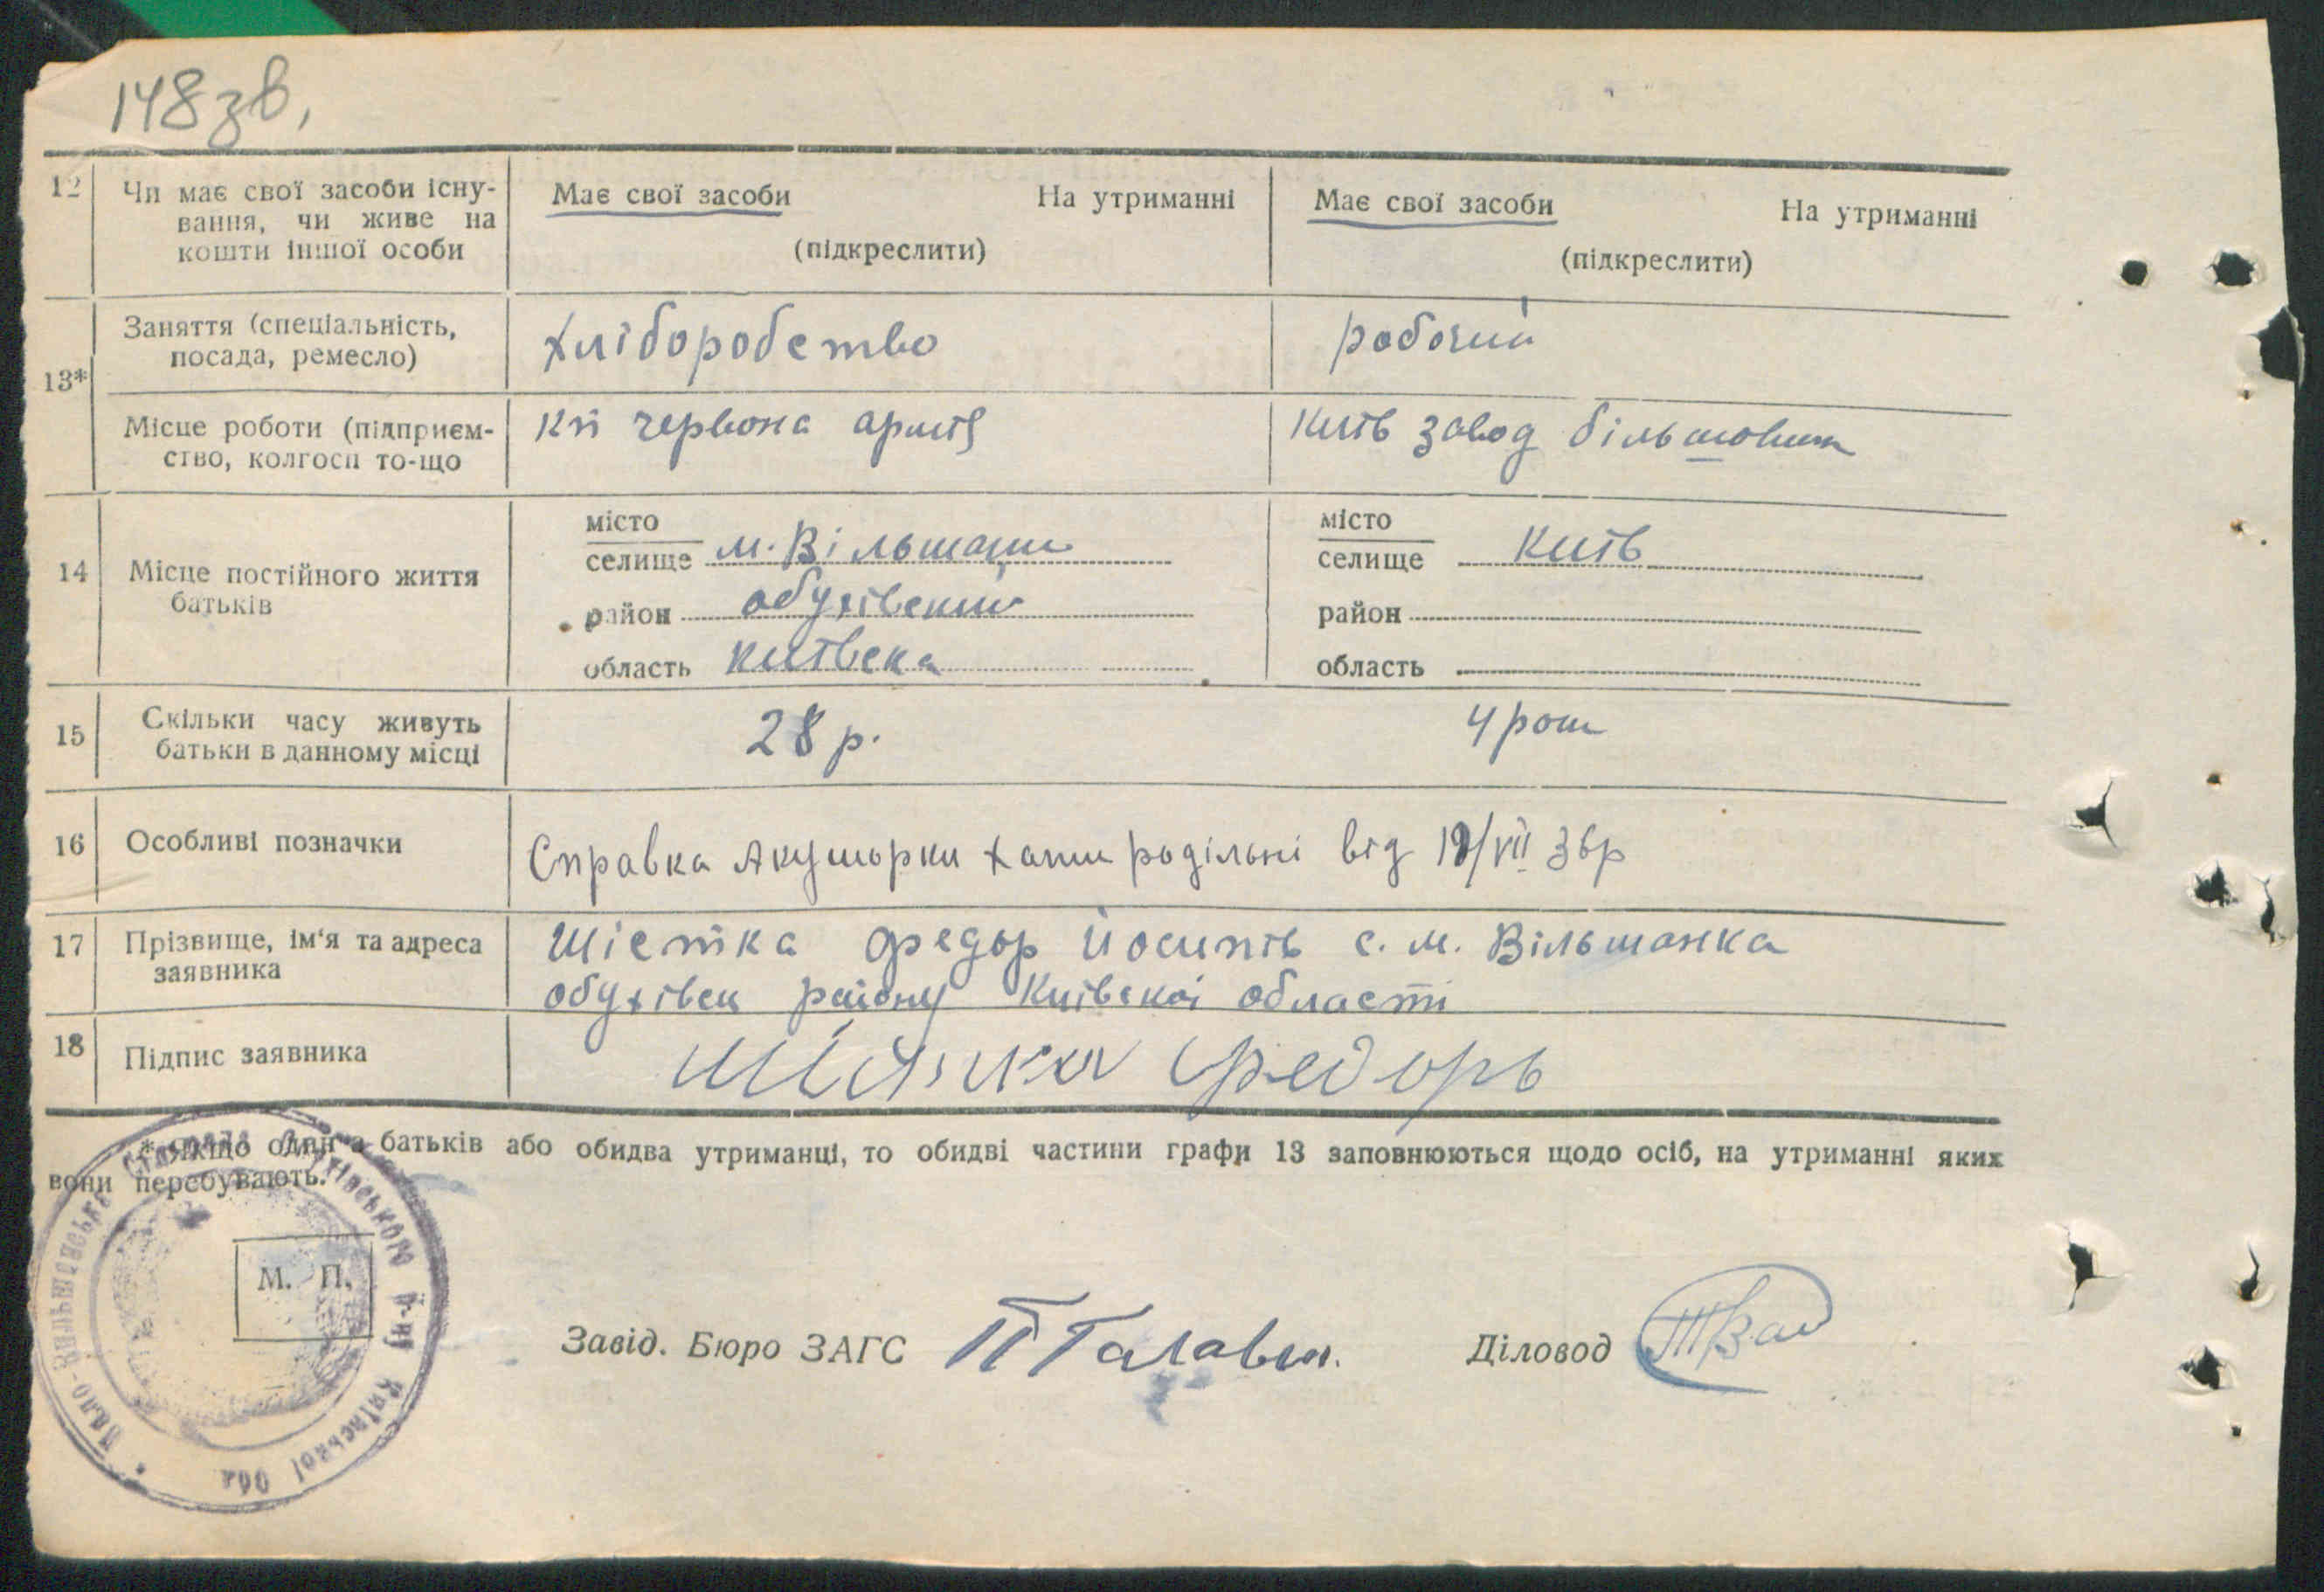 148 зв,
12 Чи має свої засоби існу- Має свої засоби На утриманні Має свої засоби На утриманні
вання, чи живе на
кошти іншої особи (підкреслити) (підкреслити)
13* Заняття (спеціальність, хліборобство робочий
посада, ремесло)
Місце роботи (підприєм- кп червона армія Київ завод більшовик
ство, колгосп то-що
14 Місце постійного життя батьків
місто місто
селище м. Вільшанн селище Київ
район обухівський район
область київська область
15 Скільки часу живуть 28 р. 4 роки
батьки в данному місці
16 Особливі позначки Справка Акушорки хати родільні від 19/VII 36р
17 Прізвище, ім'я та адреса Шістка Федор Йосипів с. м. Вільшанка
заявника обухівськ району Київскоі області
18 Підпис заявника Шістка Федорь
* Якщо один з батьків або обидва утриманці, то обидві частини графи 13 заповнюються щодо осіб, на утриманні яких
вони перебувають.
М. П.
Мало-Вільшанська Сільрада Обухівського р-ну Київської Обл
Завід. Бюро ЗАГС Діловод